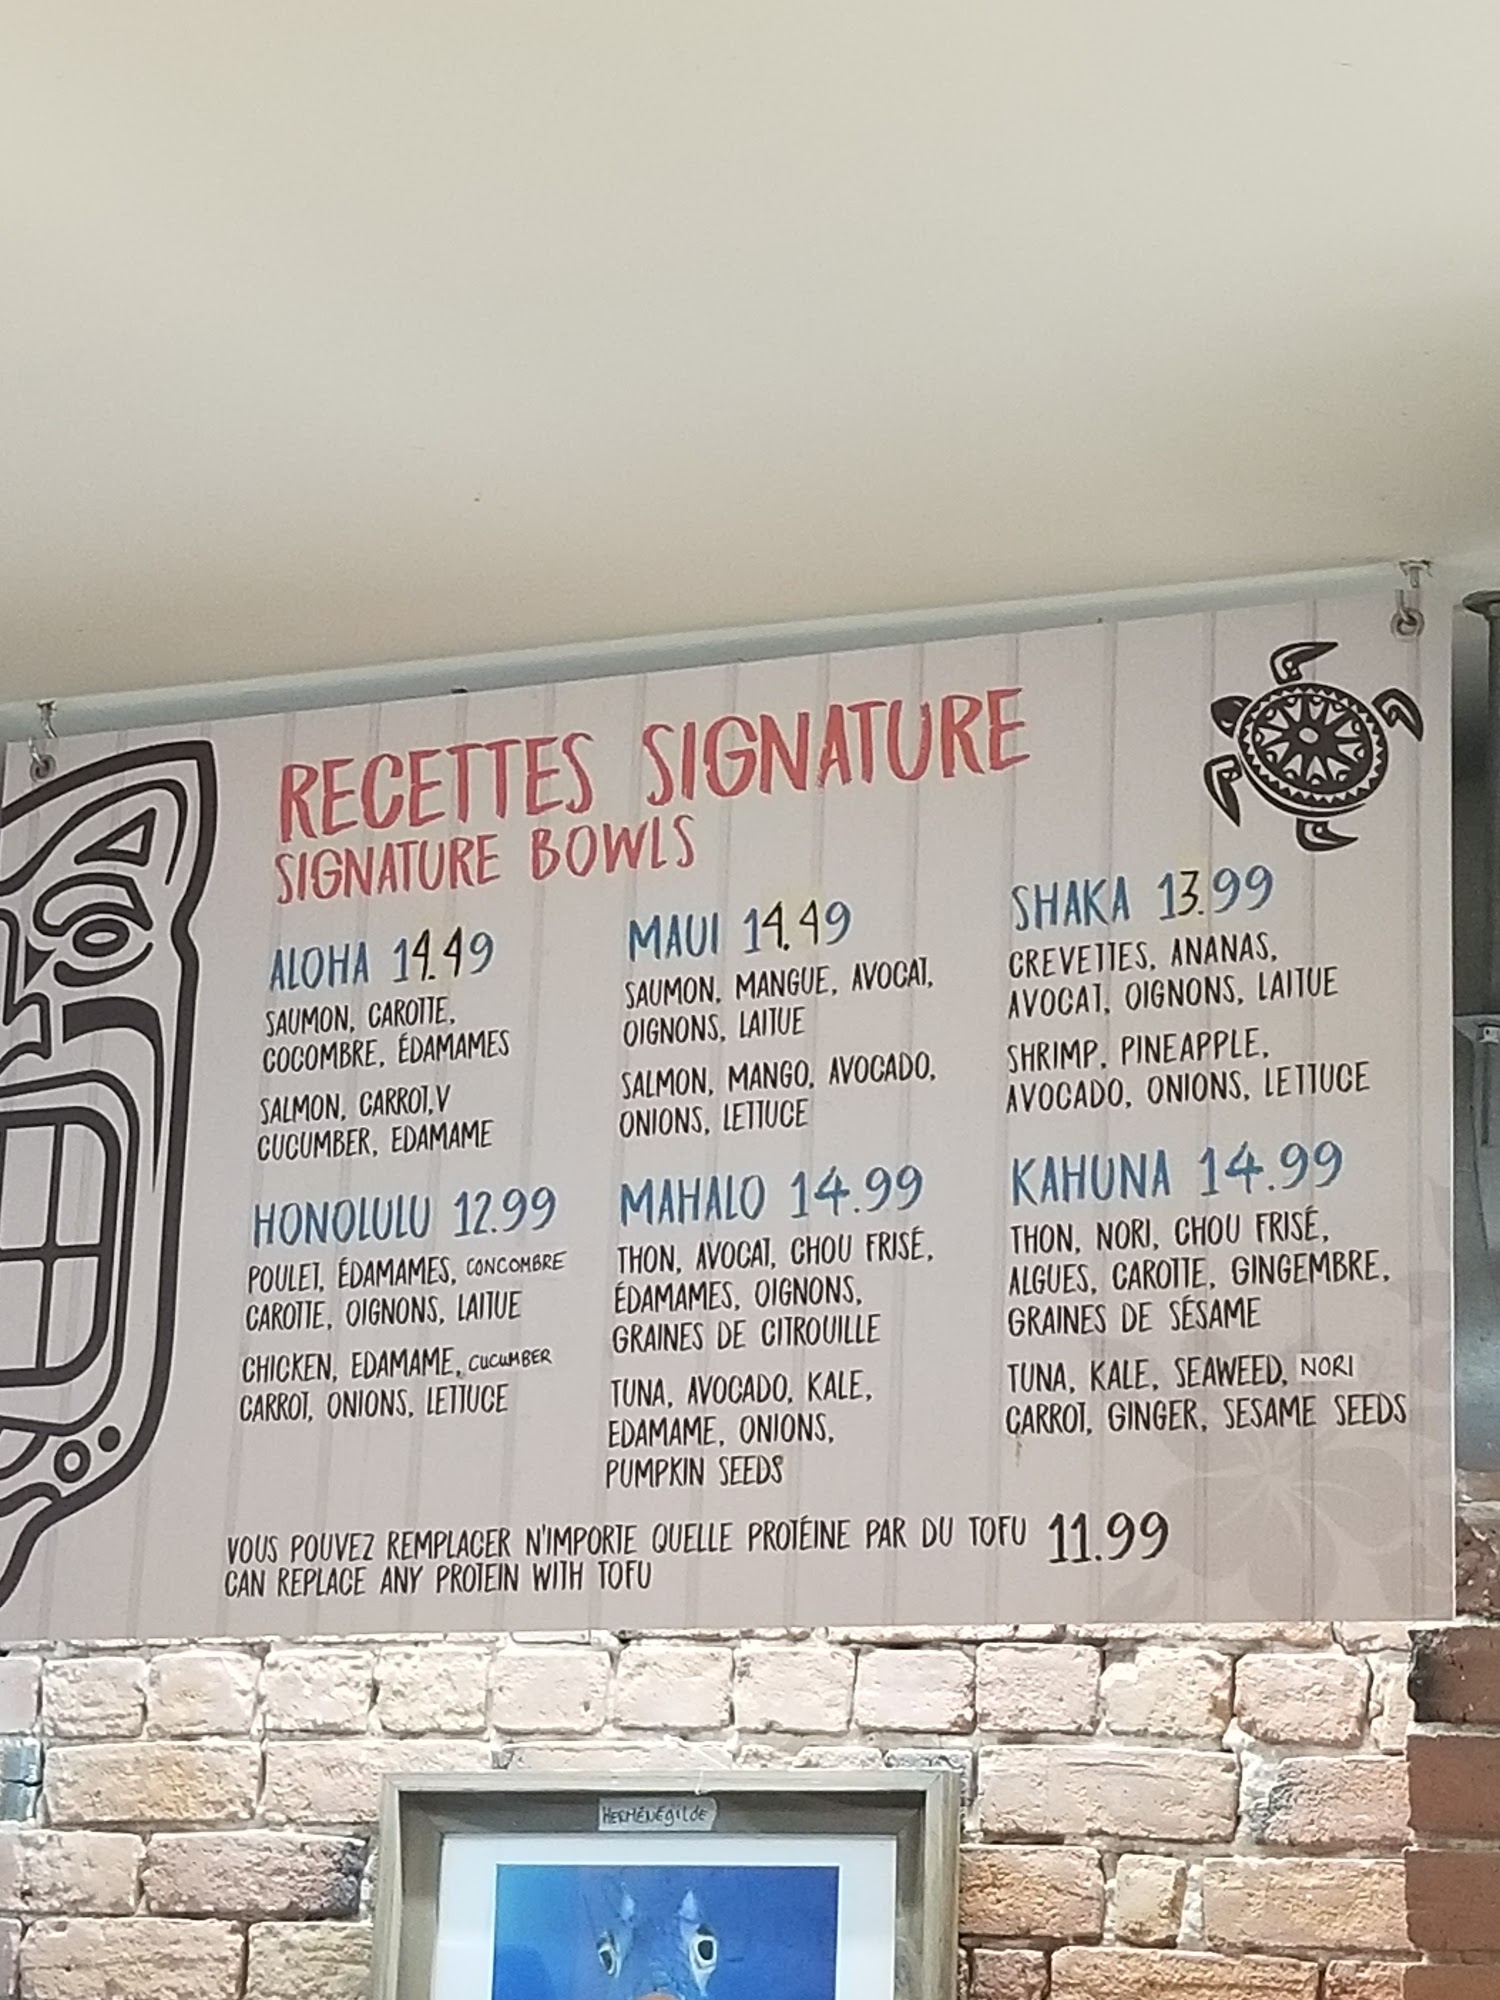 RECETTES SIGNATURE
SIGNATURE BOWLS
ALOHA 14.49
SAUMON, CAROTTE,
COCOMBRE, ÉDAMAMES
SALMON, CARROT,V
CUCUMBER, EDAMAME
MAUI 14.49
SAUMON, MANGUE, AVOCAT,
OIGNONS, LAITUE
SALMON, MANGO, AVOCADO,
ONIONS, LETTUCE
SHAKA 13.99
CREVETTES, ANANAS,
AVOCAT, OIGNONS, LAITUE
SHRIMP, PINEAPPLE,
AVOCADO, ONIONS, LETTUCE
HONOLULU 12.99
POULET, ÉDAMAMES, CONCOMBRE
CAROTTE, OIGNONS, LAITUE
CHICKEN, EDAMAME, CUCUMBER
CARROT, ONIONS, LETTUCE
MAHALO 14.99
THON, AVOCAT, CHOU FRISÉ,
ÉDAMAMES, OIGNONS,
GRAINES DE CITROUILLE
TUNA, AVOCADO, KALE,
EDAMAME, ONIONS,
PUMPKIN SEEDS
KAHUNA 14.99
THON, NORI, CHOU FRISÉ,
ALGUES, CAROTTE, GINGEMBRE,
GRAINES DE SÉSAME
TUNA, KALE, SEAWEED, NORI
CARROT, GINGER, SESAME SEEDS
VOUS POUVEZ REMPLACER N'IMPORTE QUELLE PROTÉINE PAR DU TOFU 11.99
CAN REPLACE ANY PROTEIN WITH TOFU
HERMÉNÉGILDE